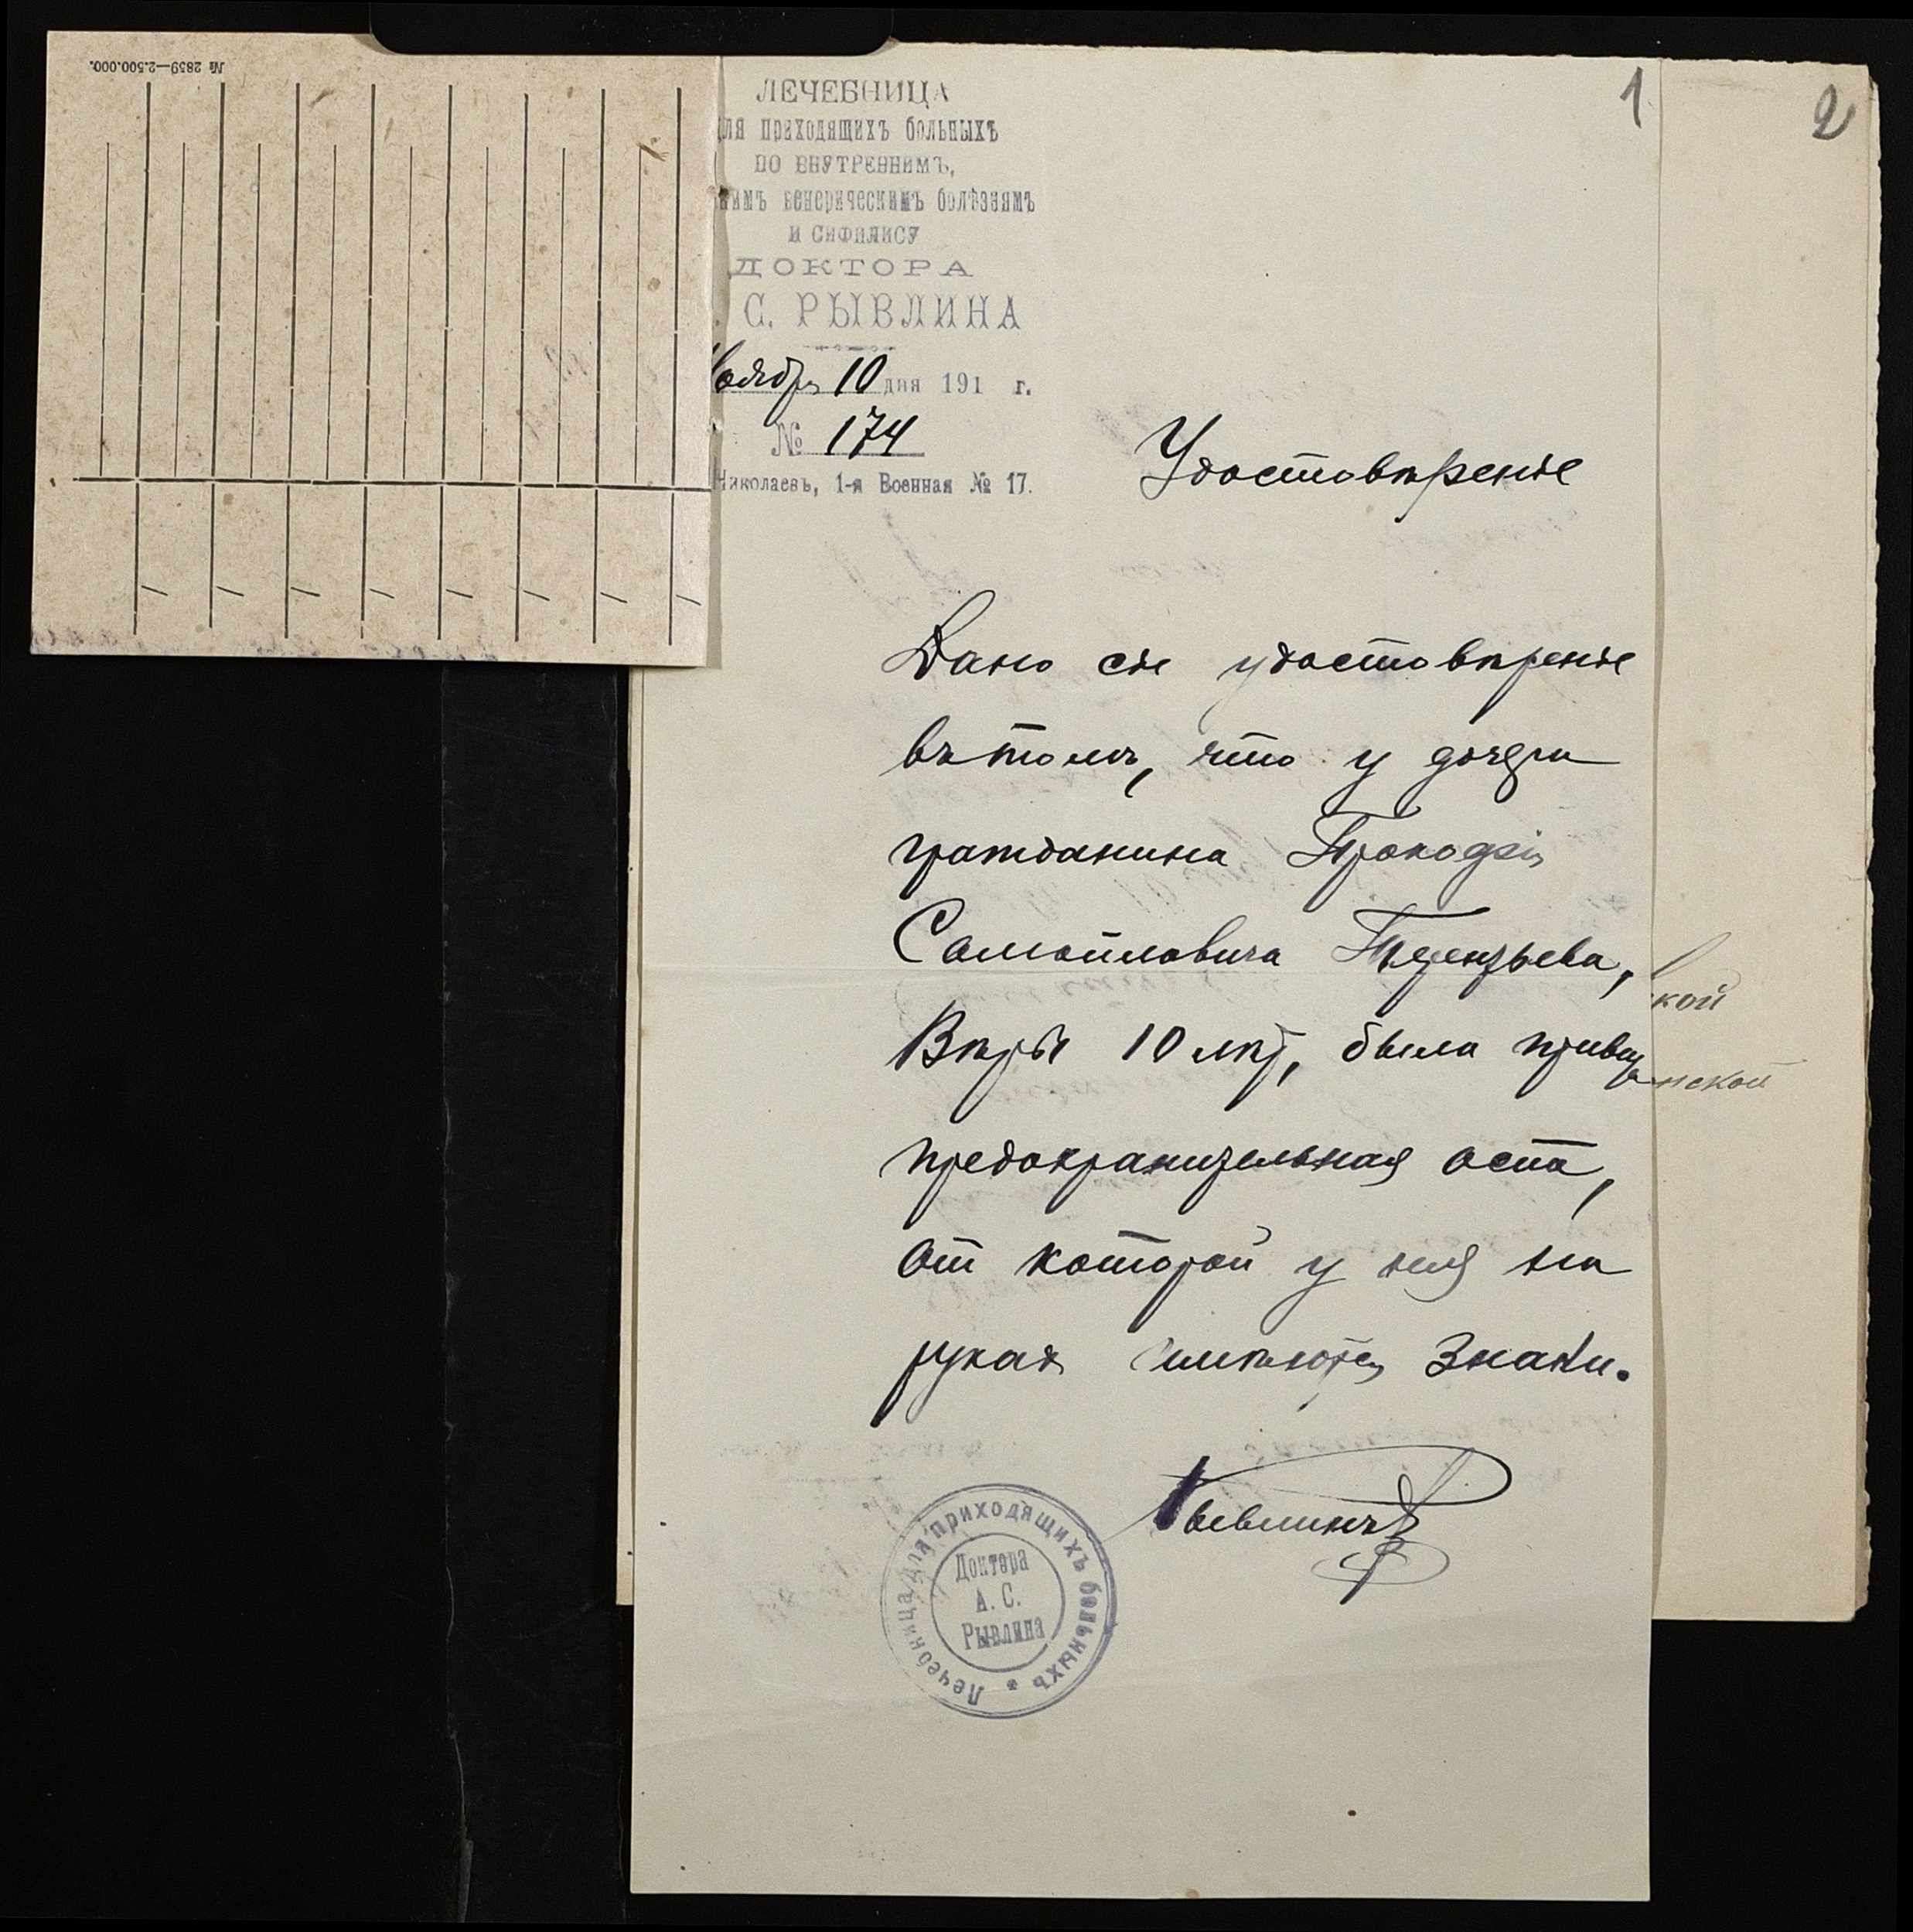 № 2859—2.500.000.
1
2
ЛЕЧЕБНИЦА
для приходящихъ больныхъ
ПО ВНУТРЕННИМЪ,
нимъ венерическимъ болѣзнямъ
И СИФИЛИСУ
ДОКТОРА
С. РЫВЛИНА
Ноября 10 дня 191 г.
№ 174
Николаевъ, 1-я Военная № 17.
Удостовѣренiе
Дано сiе удостовѣренiе
въ томъ, что у дочери
гражданина Прокофiя
Самойловича Терентьева,
Вѣры 10 лѣт, была привита
предохранительная оспа,
от которой у нея на
руках имѣются знаки.
Рывлинъ
Лечебница для приходящихъ больныхъ *
Доктора
А. С.
Рывлина
кой
нской